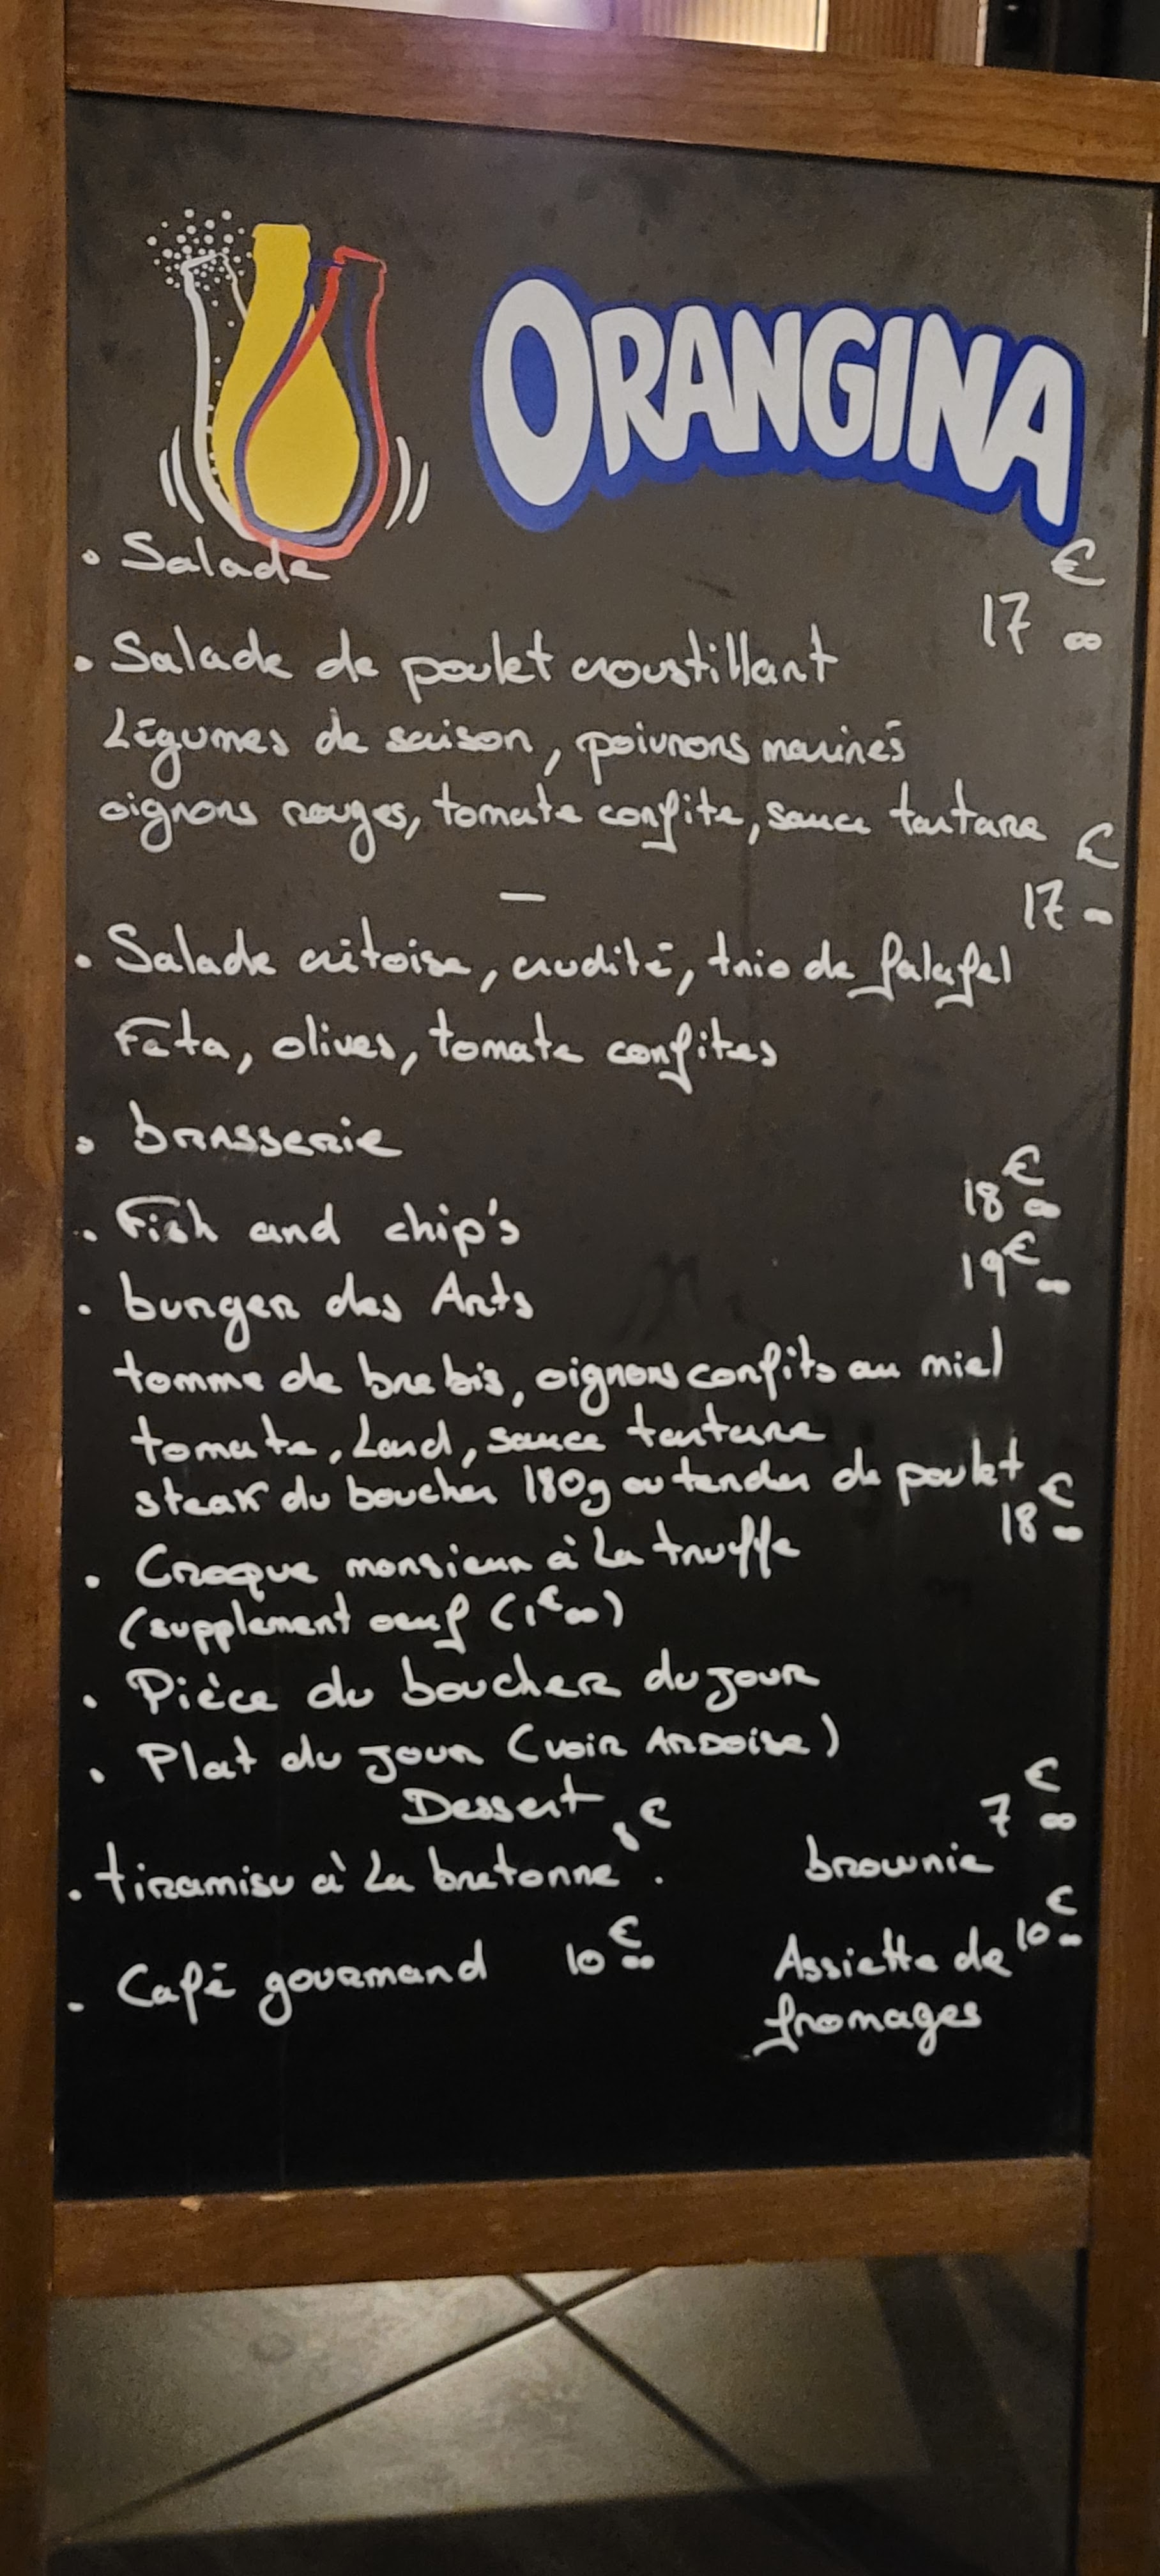 ORANGINA
• Salade
• Salade de poulet croustillant 17€00
Légumes de saison, poivrons marinés
oignons rouges, tomate confite, sauce tartare
—
• Salade crétoise, crudité, trio de falafel 17€00
Feta, olives, tomate confites
• brasserie
• Fish and chip's 18€00
• burger des Arts 19€00
tomme de brebis, oignons confits au miel
tomate, Lard, sauce tartare
steak du boucher 180g ou tender de poulet
• Croque monsieur à la truffe 18€00
(supplement oeuf (1€00)
• Pièce du boucher du jour
• Plat du jour (voir Ardoise)
Dessert
• tiramisu à la bretonne 8€. brownie 7€00
• Café gourmand 10€00 Assiette de 10€00
fromages